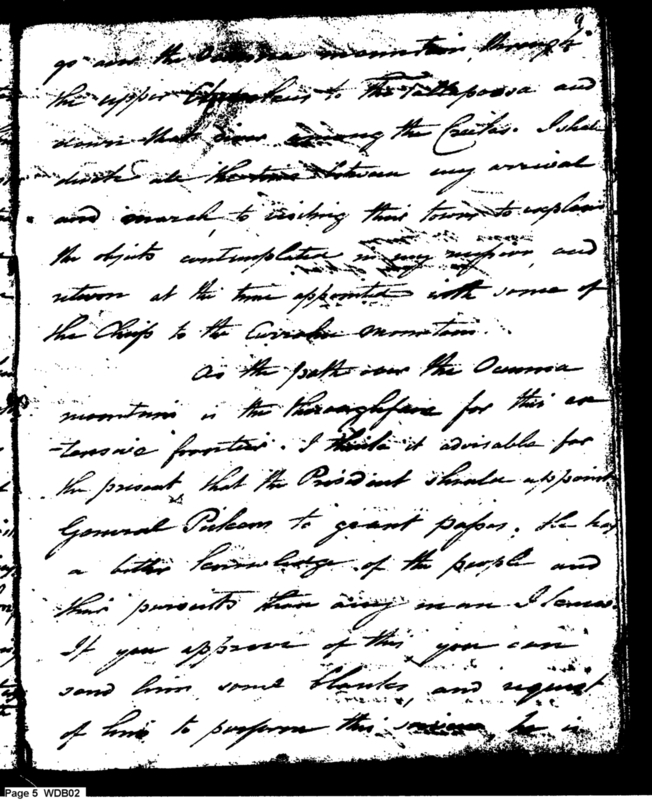 9
go over the Ocunna mountain, through
the upper Cherokees to the Tallapoosa and
down that river among the Creeks. I shall
devote all the time between my arrival
and march to visiting their towns to explain
the objects contemplated in my mission, and
return at the time appointed with some of
the Chiefs to the Currahe mountain.
As the path over the Ocunna
mountain is the thoroughfare for this ex-
tensive frontier. I think it advisable for
the present that the President should appoint
General Pickens to grant passes. He has
a better knowledge of the people and
their pursuits than any man I know.
If you approve of this you can
send him some blanks, and request
of him to perform this service, he is
Page 5 WDB02